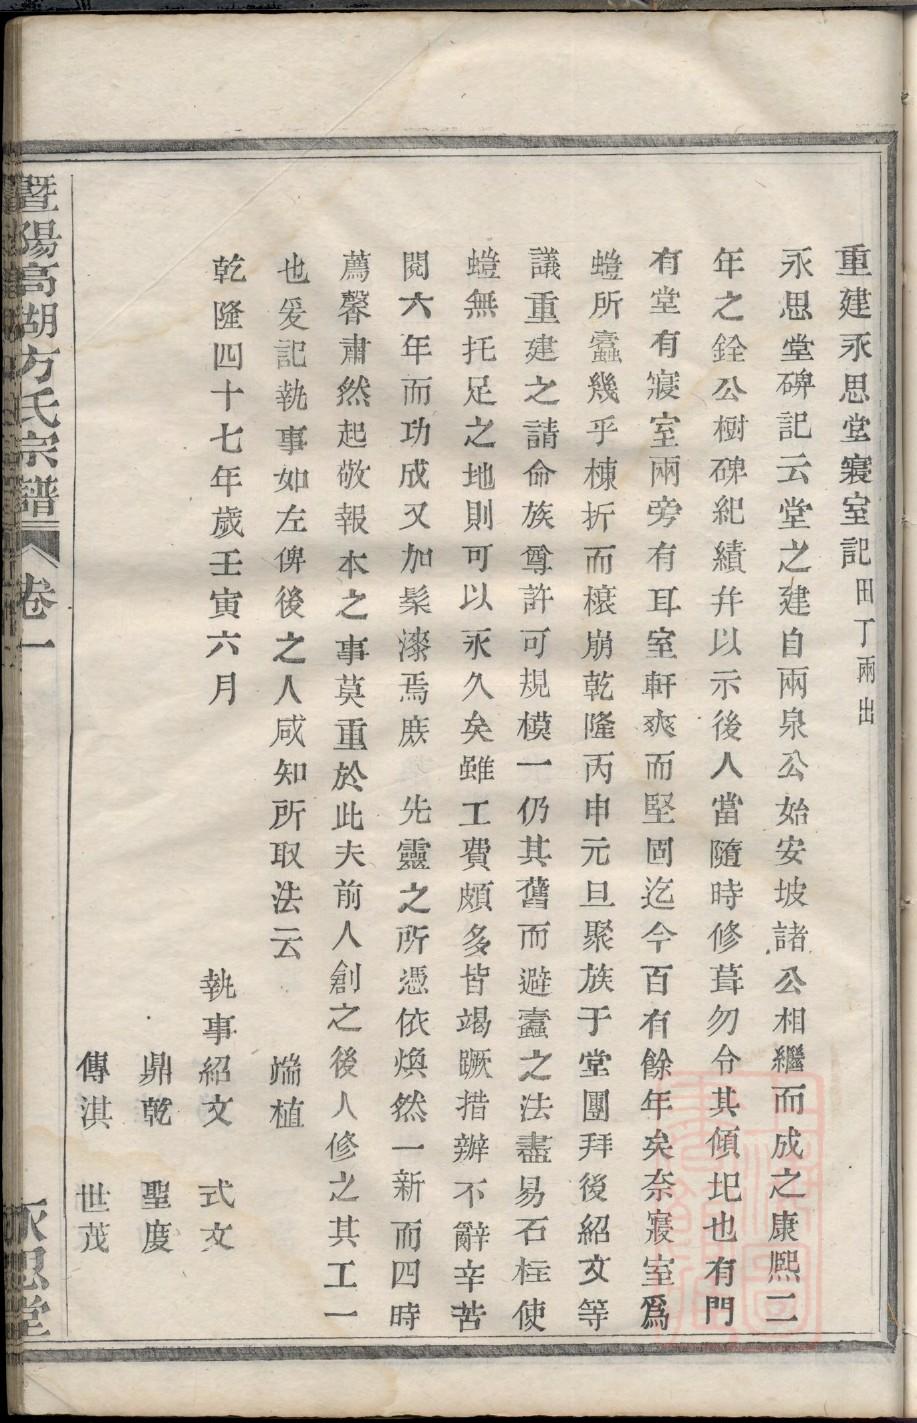 重建永思堂寢室記田丁兩出
永思堂碑記云堂之建自兩泉公始安坡諸公相繼而成之康熙二
年之銓公樹碑紀績幷以示後人當隨時修葺勿令其傾圮也有門
有堂有寢室兩旁有耳室軒爽而堅固迄今百有餘年矣奈寢室爲
螘所蠹幾乎棟折而榱崩乾隆丙申元旦聚族于堂團拜後紹文等
議重建之請命族尊許可規模一仍其舊而避蠹之法盡易石柱使
螘無托足之地則可以永久矣雖工費頗多皆竭蹶措辦不辭辛苦
閱六年而功成又加髹漆焉庶先靈之所憑依煥然一新而四時
薦馨肅然起敬報本之事莫重於此夫前人創之後人修之其工一
也爰記執事如左俾後之人咸知所取法云 端植
乾隆四十七年歲壬寅六月 執事紹文 式文
鼎乾 聖度
傳淇 世茂
暨陽高湖方氏宗譜 卷一 永思堂